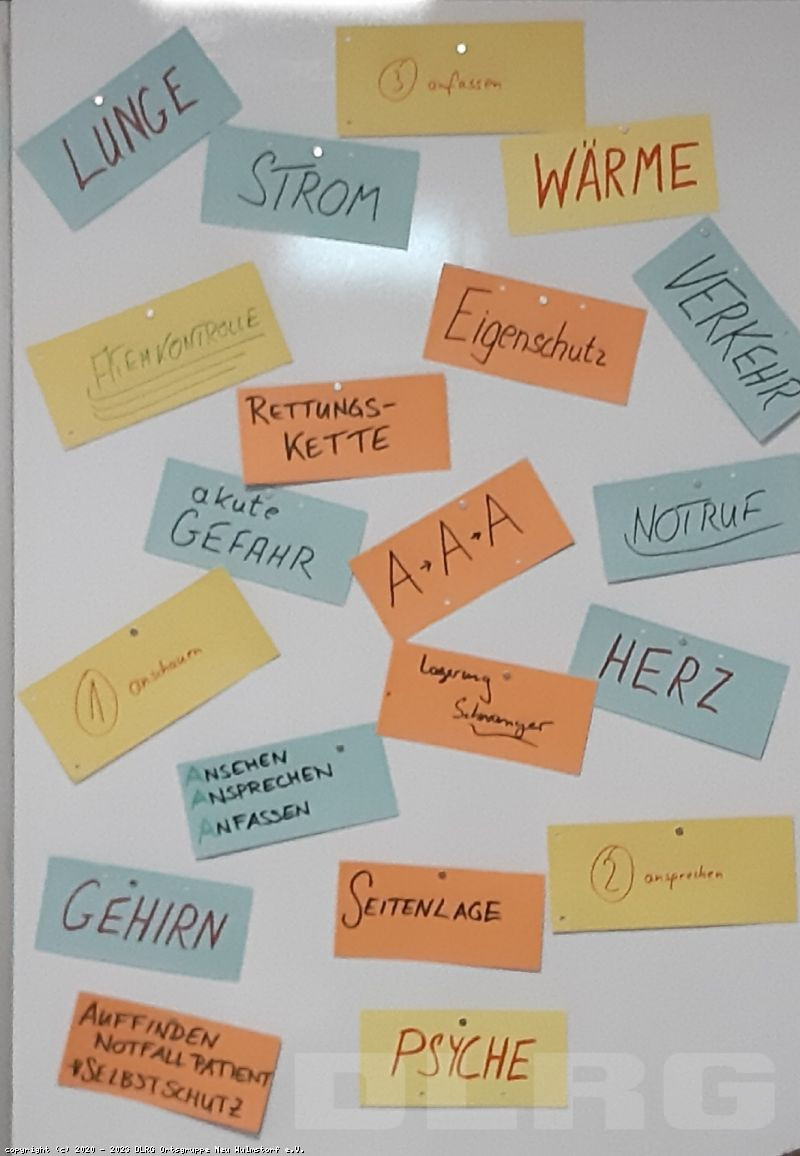 LUNGE
③ anfassen
STROM
WÄRME
VERKEHR
ATEMKONTROLLE
Eigenschutz
RETTUNGS-
KETTE
akute
GEFAHR
A→A→A
NOTRUF
① anschauen
Lagerung
Schwanger
HERZ
ANSEHEN
ANSPRECHEN
ANFASSEN
② ansprechen
GEHIRN
SEITENLAGE
AUFFINDEN
NOTFALLPATIENT
#SELBSTSCHUTZ
PSYCHE
DLRG
copyright (c) 2020 - 2023 DLRG Ortsgruppe Neu Wulmstorf e.V.